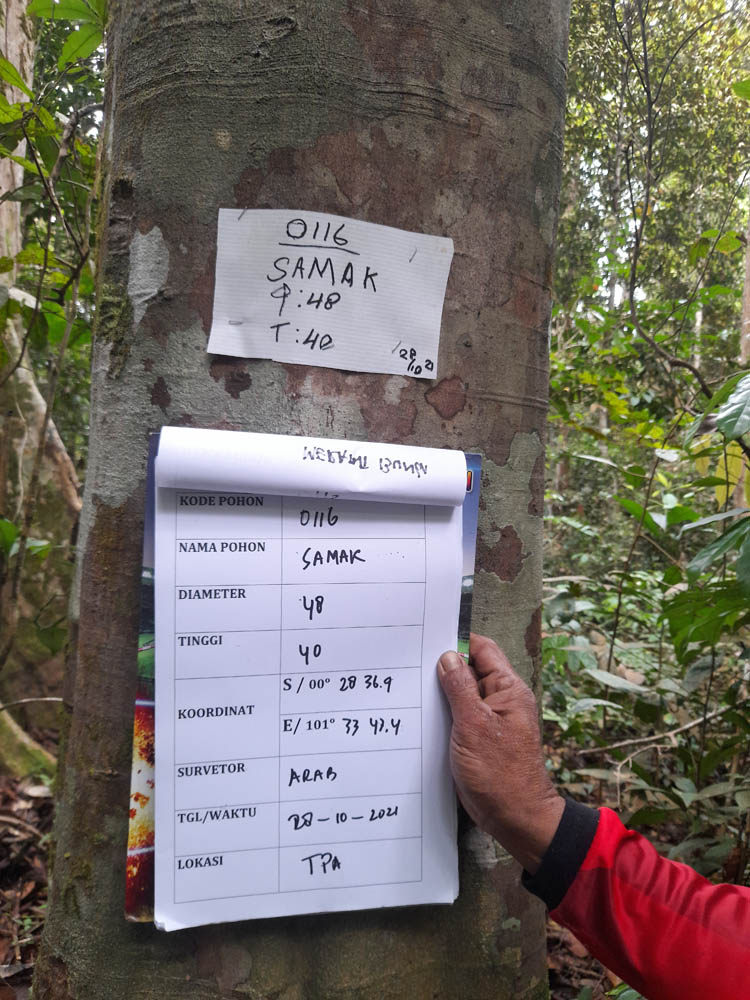 0116
SAMAK
φ : 48
T : 40
28/10 21
KODE POHON 0116
NAMA POHON SAMAK
DIAMETER 48
TINGGI 40
KOORDINAT S / 00° 28 36.9
E/ 101° 33 43.4
SURVETOR ARAB
TGL/WAKTU 28-10-2021
LOKASI TPA